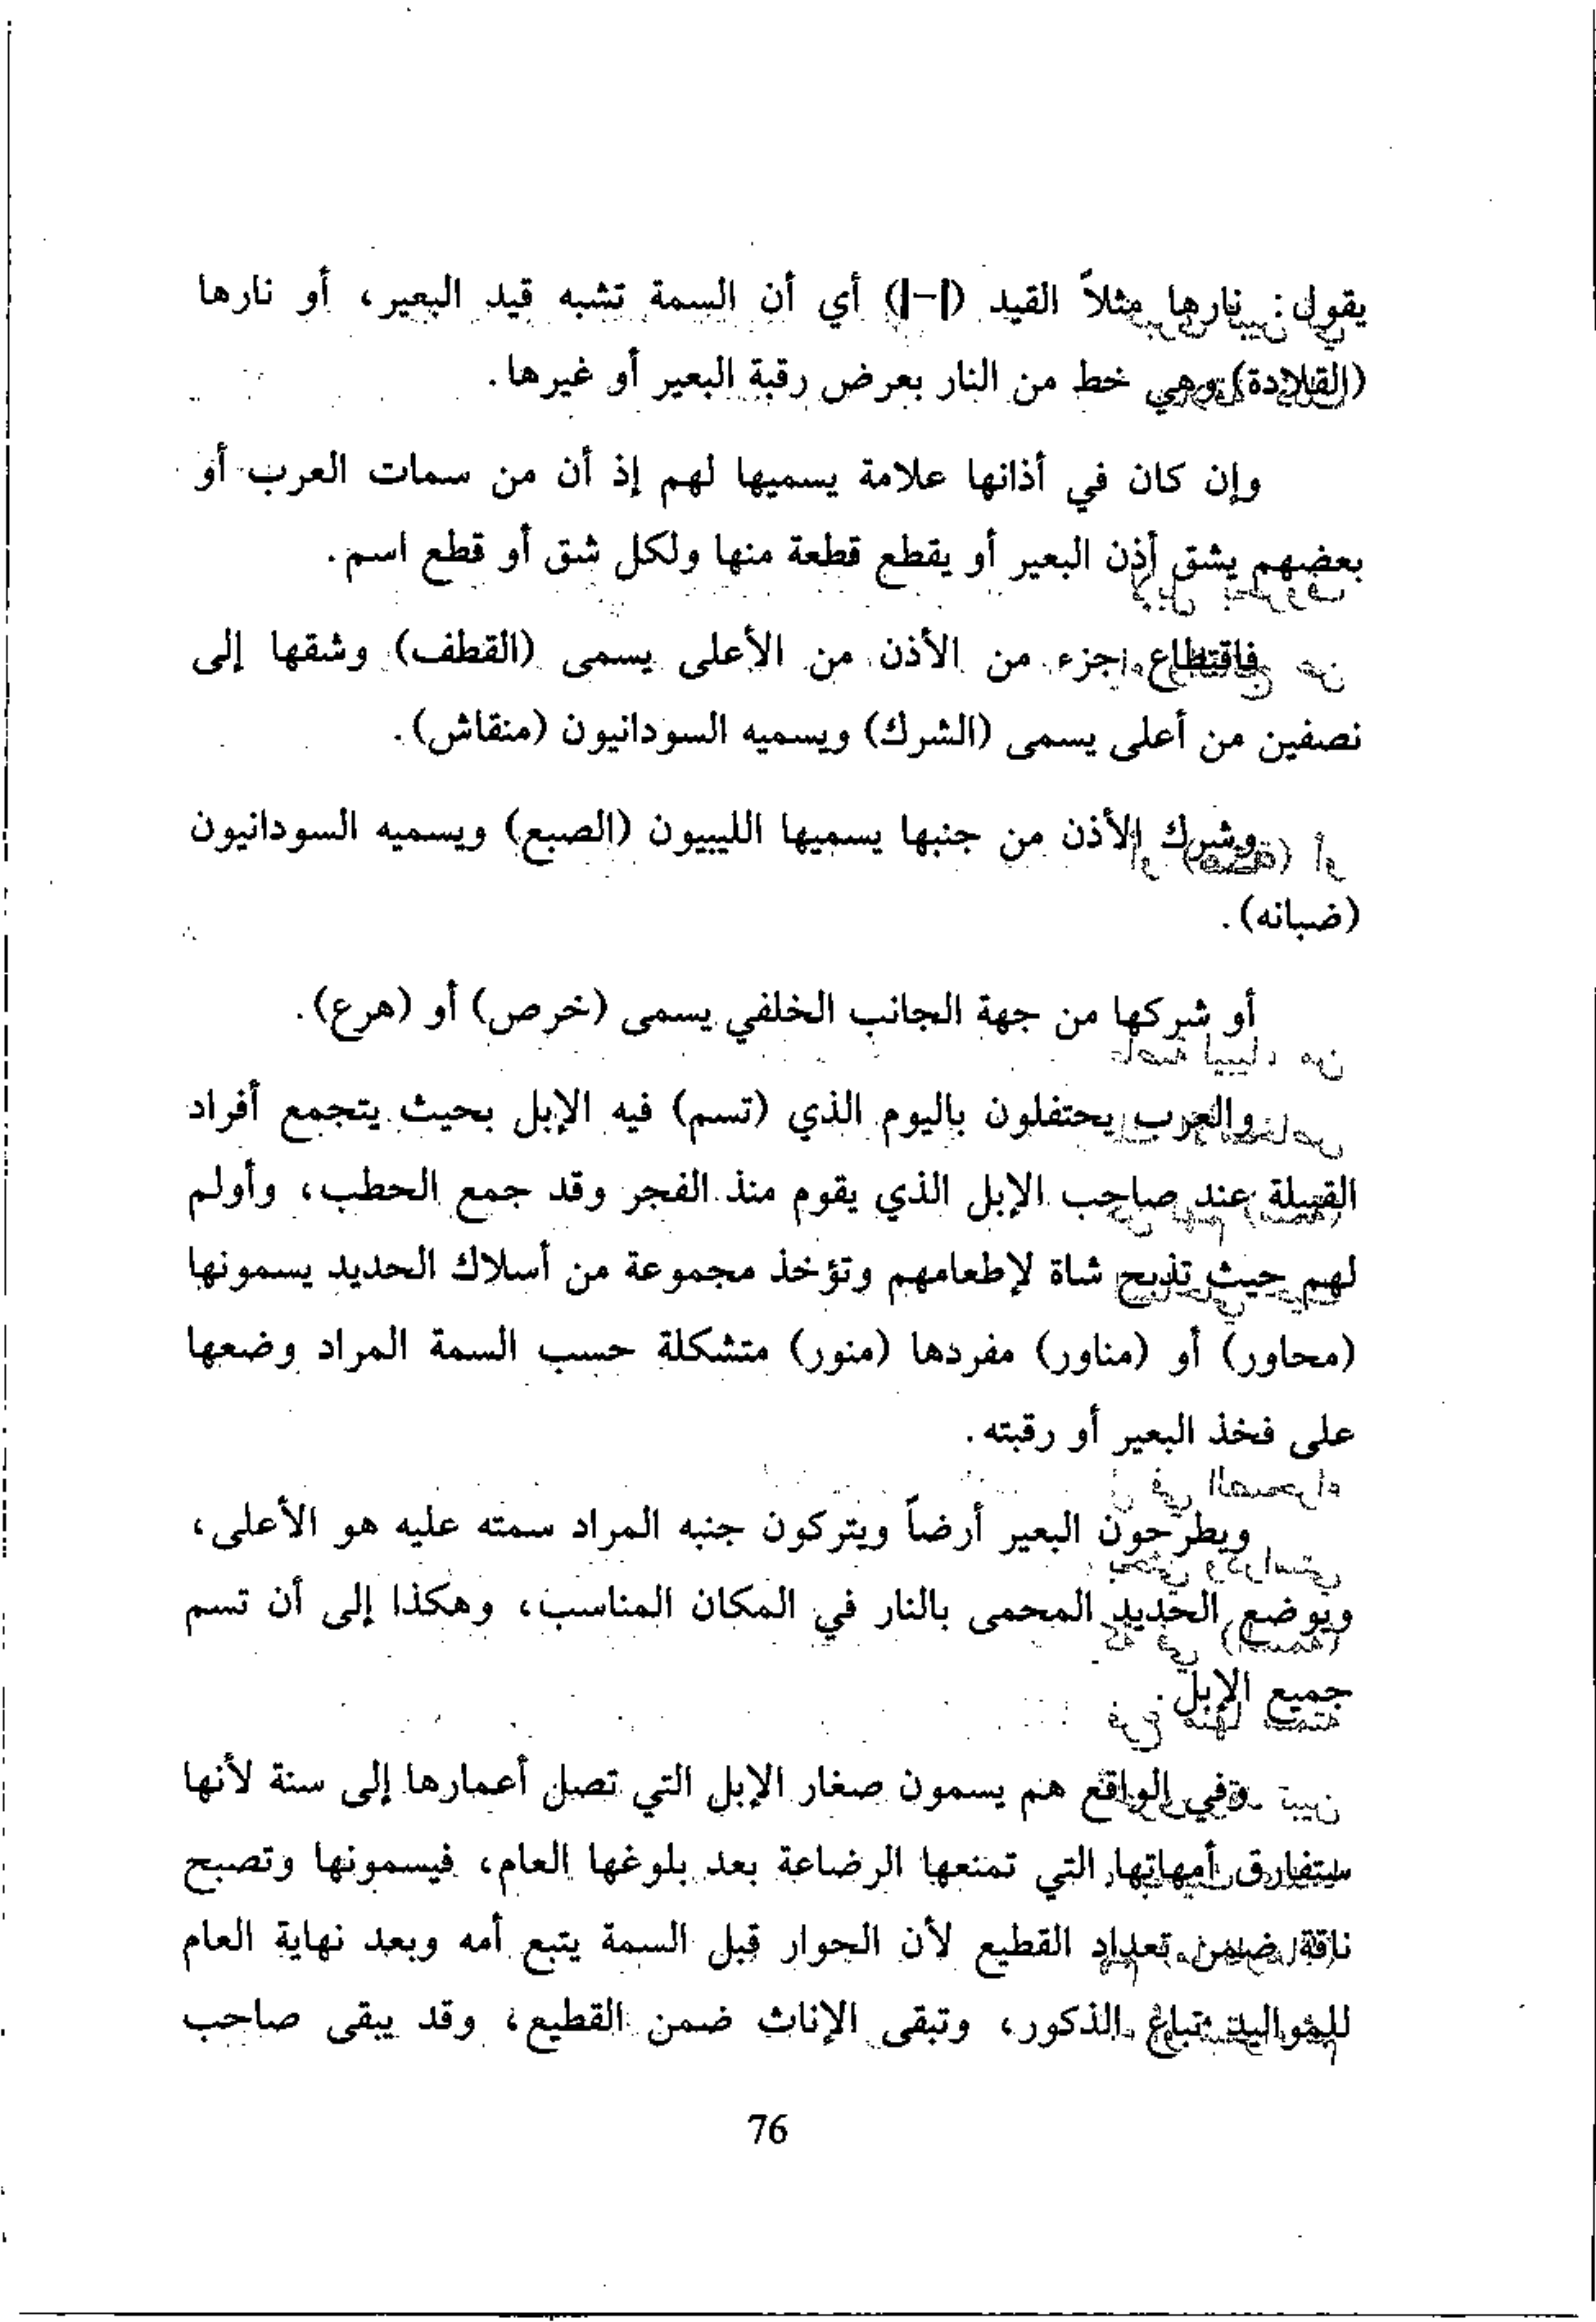 يقول: نارها مثلاً القيد (|-|) أي أن السمة تشبه قيد البعير، أو نارها
(القلادة) وهي خط من النار بعرض رقبة البعير أو غيرها.
وإن كان في أذانها علامة يسميها لهم إذ أن من سمات العرب أو
بعضهم يشق أذن البعير أو يقطع قطعة منها ولكل شق أو قطع اسم.
فاقتطاع جزء من الأذن من الأعلى يسمى (القطف) وشقها إلى
نصفين من أعلى يسمى (الشرك) ويسميه السودانيون (منقاش).
وشرك الأذن من جنبها يسميها الليبيون (الصبع) ويسميه السودانيون
(ضبانه).
أو شركها من جهة الجانب الخلفي يسمى (خرص) أو (هرع).
والعرب يحتفلون باليوم الذي (تسم) فيه الإبل بحيث يتجمع أفراد
القبيلة عند صاحب الإبل الذي يقوم منذ الفجر وقد جمع الحطب، وأولم
لهم حيث تذبح شاة لإطعامهم وتؤخذ مجموعة من أسلاك الحديد يسمونها
(محاور) أو (مناور) مفردها (منور) متشكلة حسب السمة المراد وضعها
على فخذ البعير أو رقبته.
ويطرحون البعير أرضاً ويتركون جنبه المراد سمته عليه هو الأعلى،
ويوضع الحديد المحمى بالنار في المكان المناسب، وهكذا إلى أن تسم
جميع الإبل.
وفي الواقع هم يسمون صغار الإبل التي تصل أعمارها إلى سنة لأنها
ستفارق أمهاتها التي تمنعها الرضاعة بعد بلوغها العام، فيسمونها وتصبح
ناقة ضمن تعداد القطيع لأن الحوار قبل السمة يتبع أمه وبعد نهاية العام
للمواليد تباع الذكور، وتبقى الإناث ضمن القطيع، وقد يبقى صاحب
76